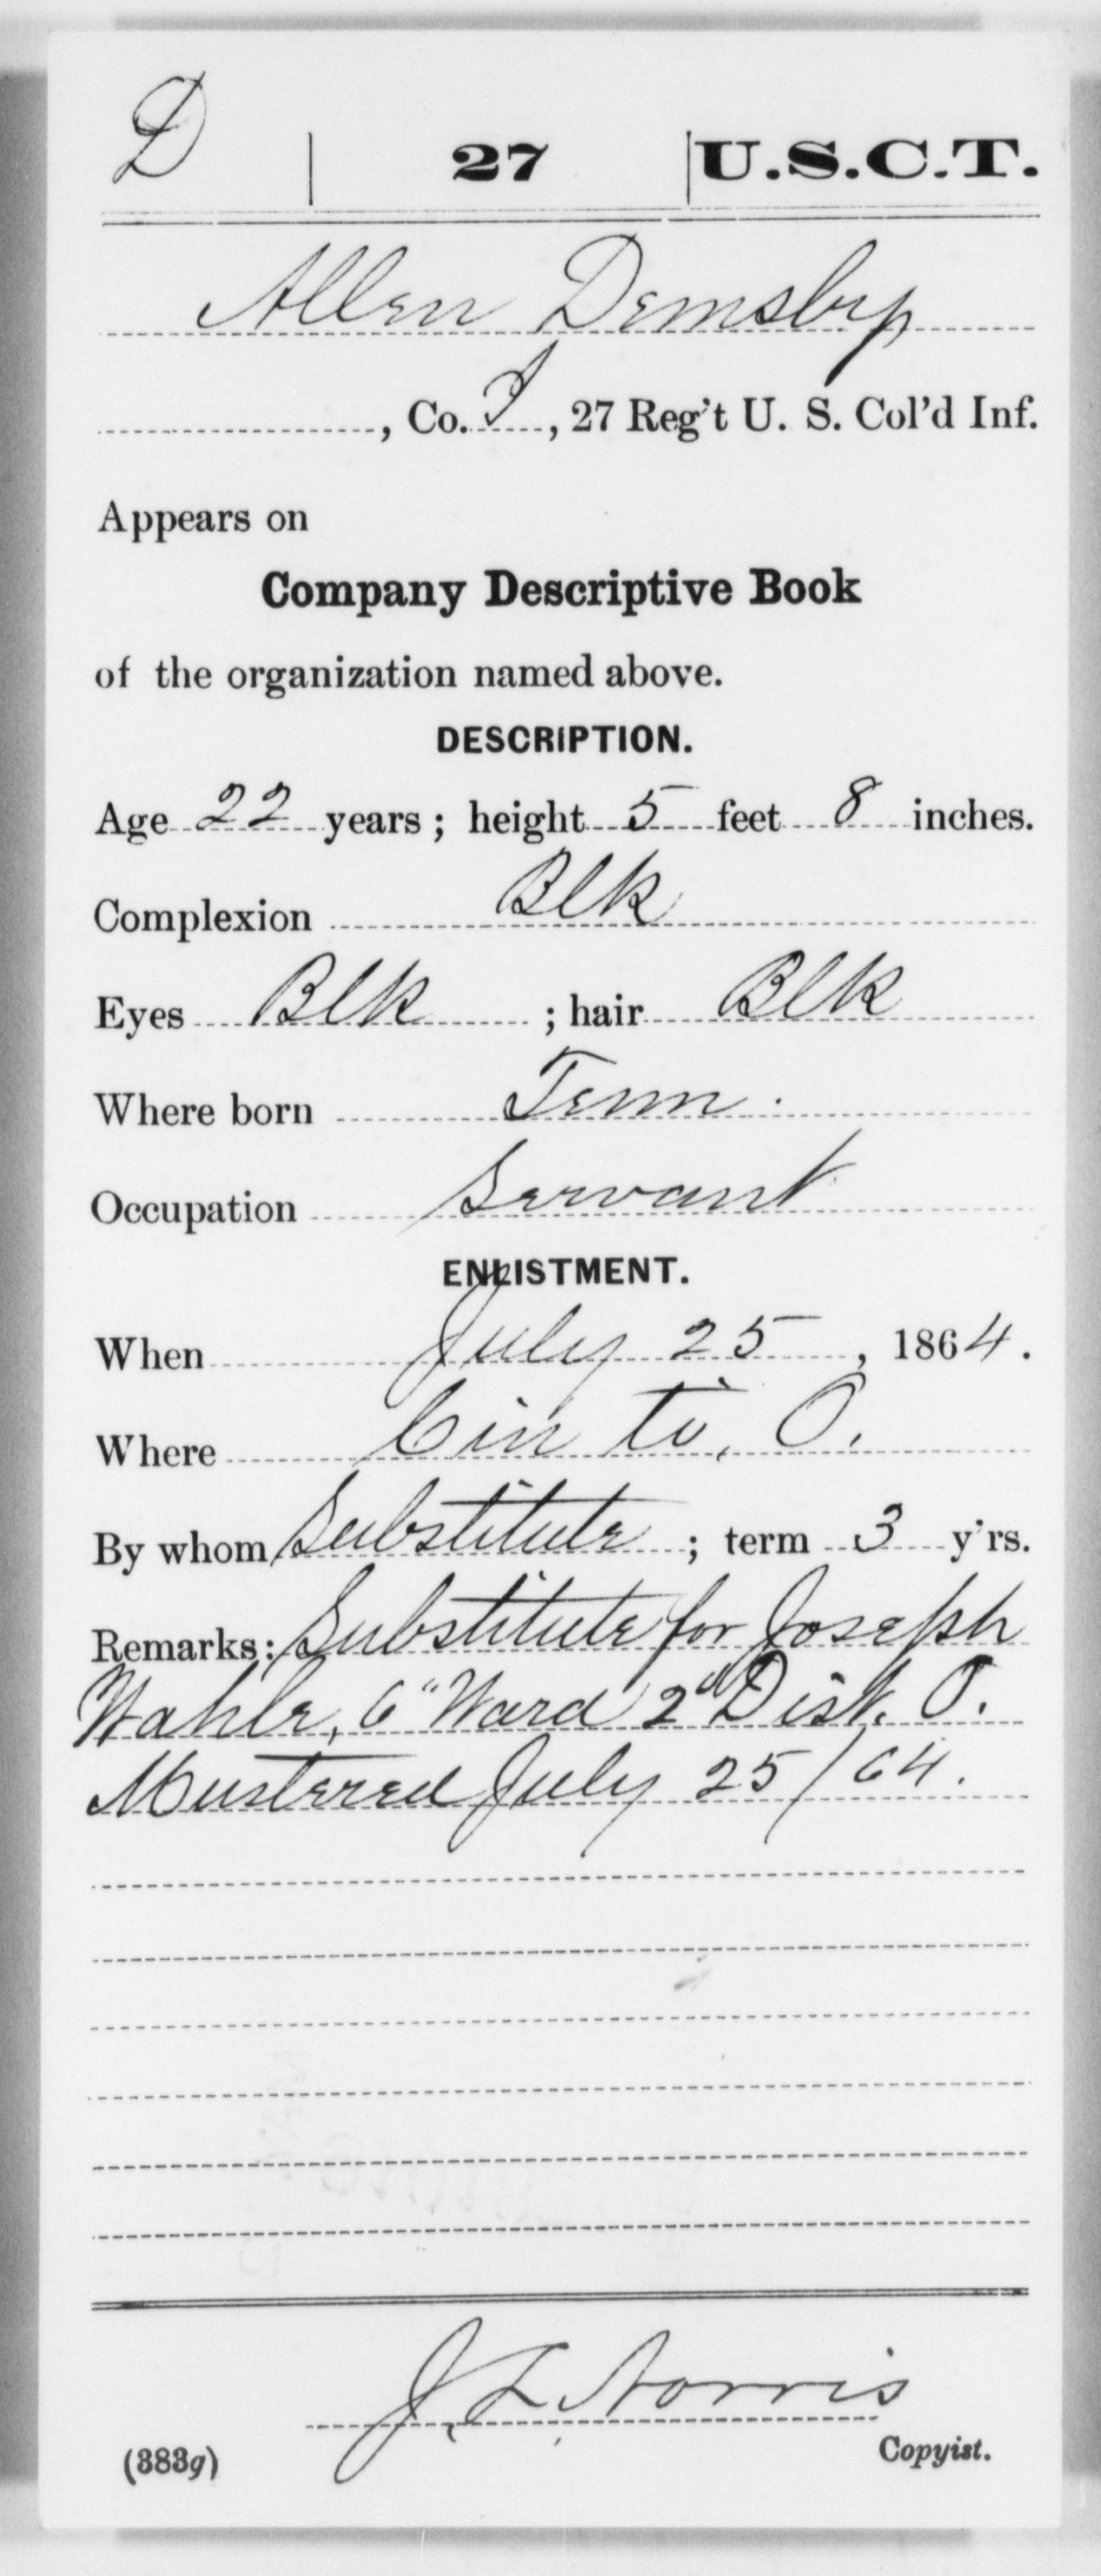 D | 27 | U.S.C.T.
Allen Demsby
, Co. I, 27 Reg't U. S. Col'd Inf.
Appears on
Company Descriptive Book
of the organization named above.
DESCRIPTION.
Age 22 years; height 5 feet 8 inches.
Complexion Blk
Eyes Blk ; hair Blk
Where born Tenn.
Occupation Servant
ENLISTMENT.
When July 25, 1864.
Where Cin ti, O.
By whom Substitute; term 3 y'rs.
Remarks: Substitute for Joseph
Wahle, 6" Ward 2d Dist. O.
Mustered July 25/64.
J. L. Norris
(383g) Copyist.